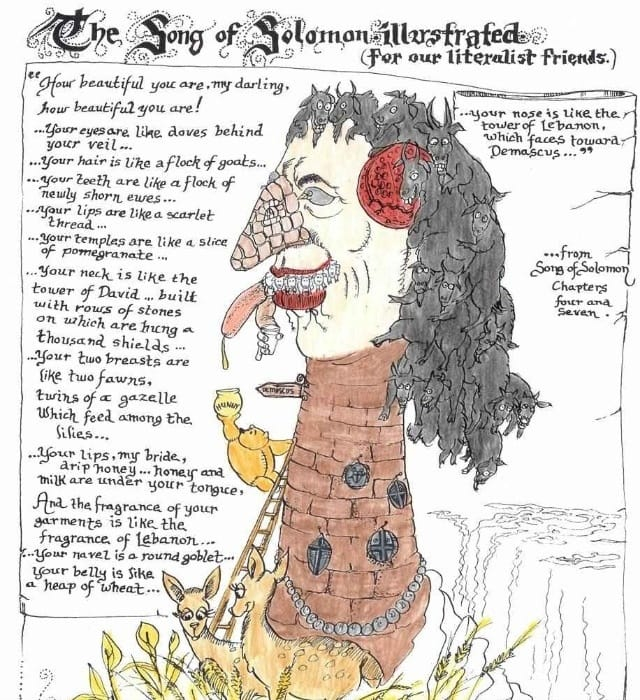 The Song of Solomon illustrated
(for our literalist friends.)
"How beautiful you are, my darling,
how beautiful you are!
...Your eyes are like doves behind
your veil...
...Your hair is like a flock of goats...
...your teeth are like a flock of
newly shorn ewes...
...your lips are like a scarlet
thread...
...your temples are like a slice
of pomegranate...
...your neck is like the
tower of David... built
with rows of stones
on which are hung a
thousand shields...
...Your two breasts are
like two fawns,
twins of a gazelle
Which feed among the
lilies...
...Your lips, my bride,
drip honey... honey and
milk are under your tongue,
And the fragrance of your
garments is like the
fragrance of Lebanon...
...Your navel is a round goblet...
your belly is like
a heap of wheat...
...your nose is like the
tower of Lebanon,
which faces toward
Demascus..."
...from
Song of Solomon
Chapters
four and
seven.
DEMASCUS
HUNNY